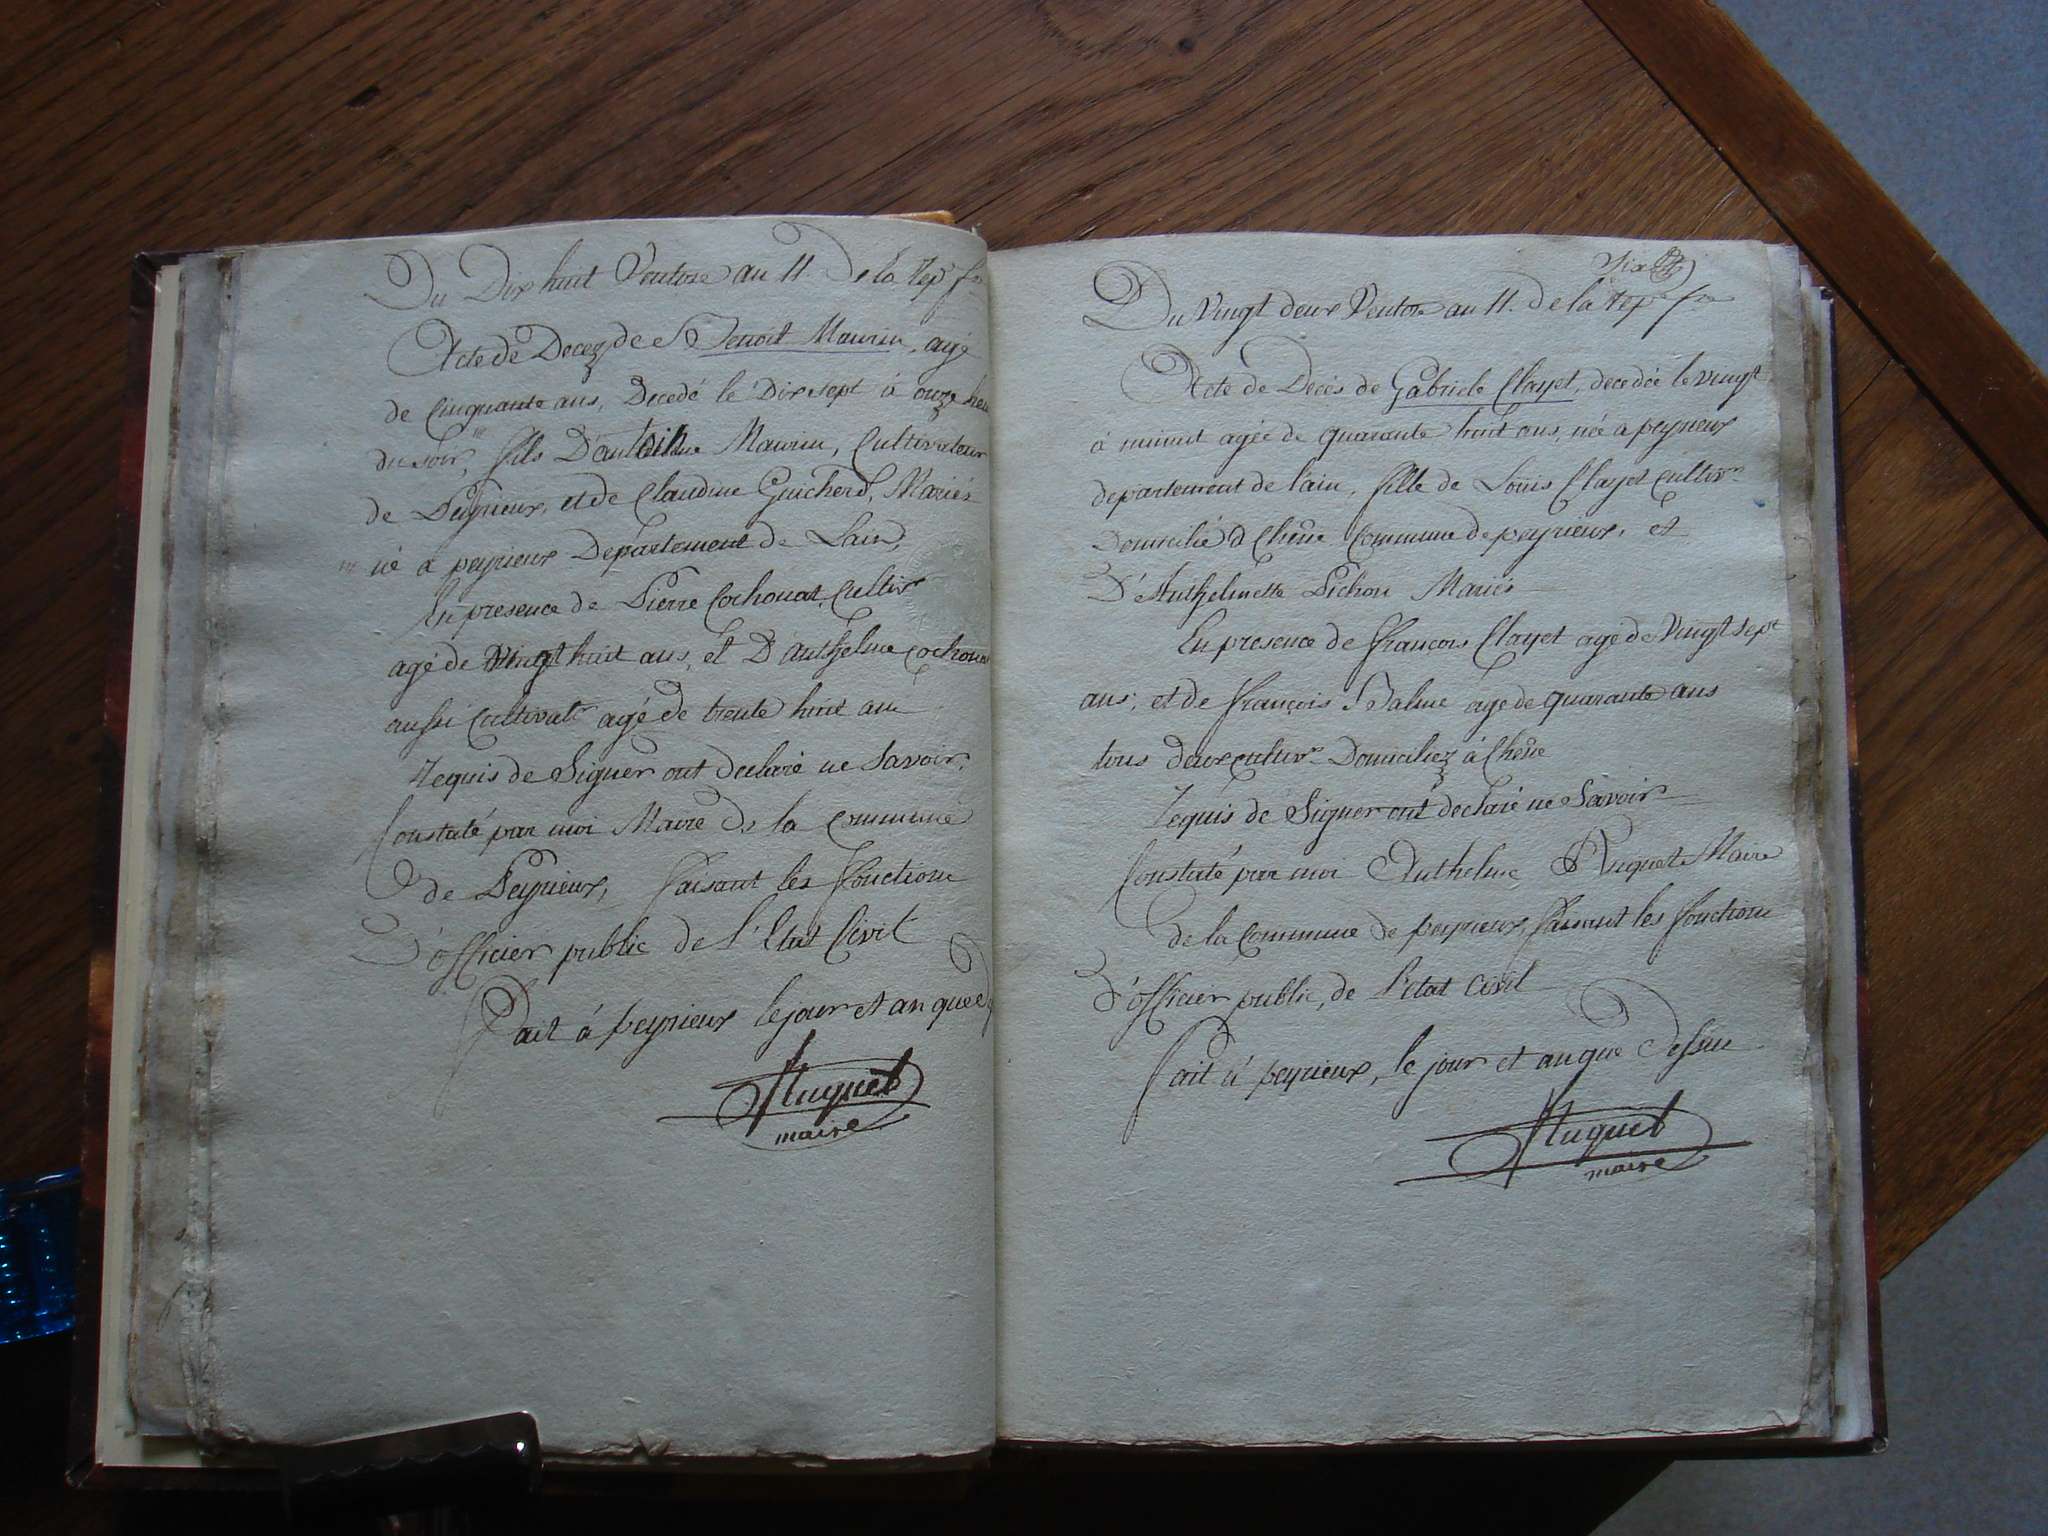 Du Dix huit Ventose an 11 De la Rep. fse
Acte de Decez de Sr Benoit Maurin, agé
de Cinquante ans, Decedé le Dix sept à onze heu
du soir, fils D'antoinne Maurin, Cultivateur
de Peyrieux, et de Claudine Guicherd, Mariés
né a peyrieux Departement de Lain,
En presence de Pierre Cochonat, Cultivr
agé de Vingt huit ans, et D'anthelme Cochonat
aussi Cultivatr agé de trente huit ans
Requis de Signer ont declaré ne Savoir.
Constaté par moi Maire de la Commune
de Peyrieux, faisant les fonctions
D'officier public de l'Etat Civil
Fait à peyrieux le jour et an que d
Huguet
maire
Six
Du Vingt deux Ventose an 11. de la Repe fse
Acte de Decès de Gabriele Clayet, decedée le vingt
à minuit agée de quarante huit ans, née a peyrieux
departement de l'ain, fille de Loüis Clayet Cultivr
Domicilié à Chêne Commune de peyrieux, et
D'Anthelmette Pichon Mariés
En presence de François Clayet agé de Vingt sept
ans, et de François Balme agé de quarante ans
tous deux cultivrs Domiciliez à Chêne
Requis de Signer ont declaré ne Savoir
Constaté par moi Anthelme Huguet Maire
de la Commune de peyrieux, faisant les fonctions
D'officier public, de l'etat Civil
Fait à peyrieux, le jour et an que Dessus
Huguet
maire